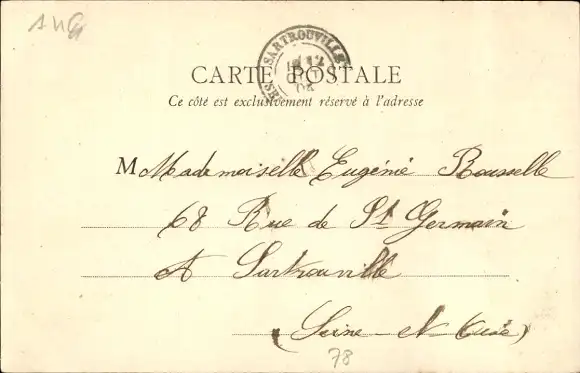 SARTROUVILLE
12
04
CARTE POSTALE
Ce côté est exclusivement réservé à l'adresse
M Mademoiselle Eugénie Rousselle
68 Rue de St Germain
A Sartrouville
(Seine et Oise)
78